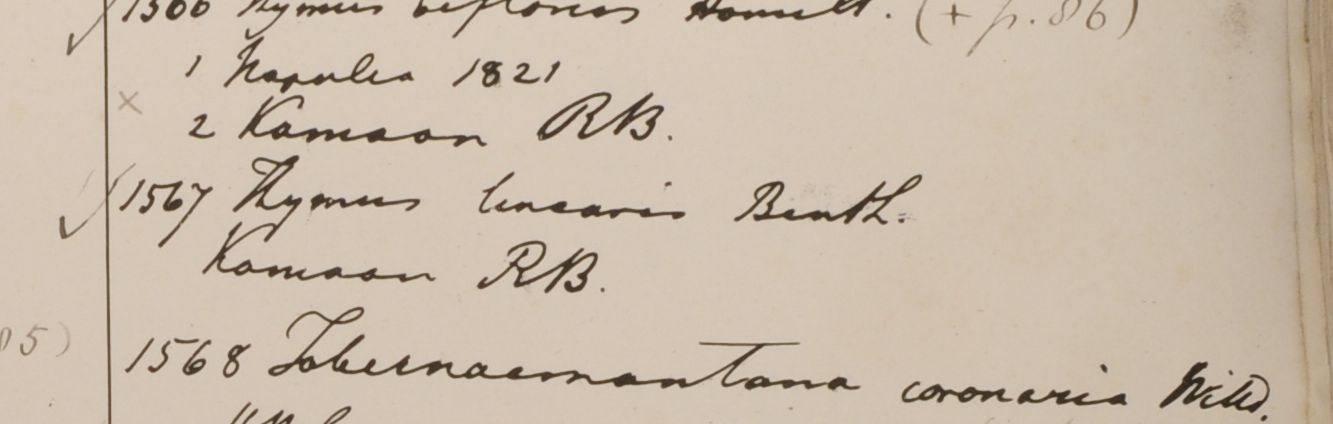 1566 Thymus biflorus Hamilt. (+ p. 86)
1 Napulia 1821
× 2 Kamaon RB.
1567 Thymus linearis Benth.
Kamaon RB.
1568 Tabernaemontana coronaria Willd.